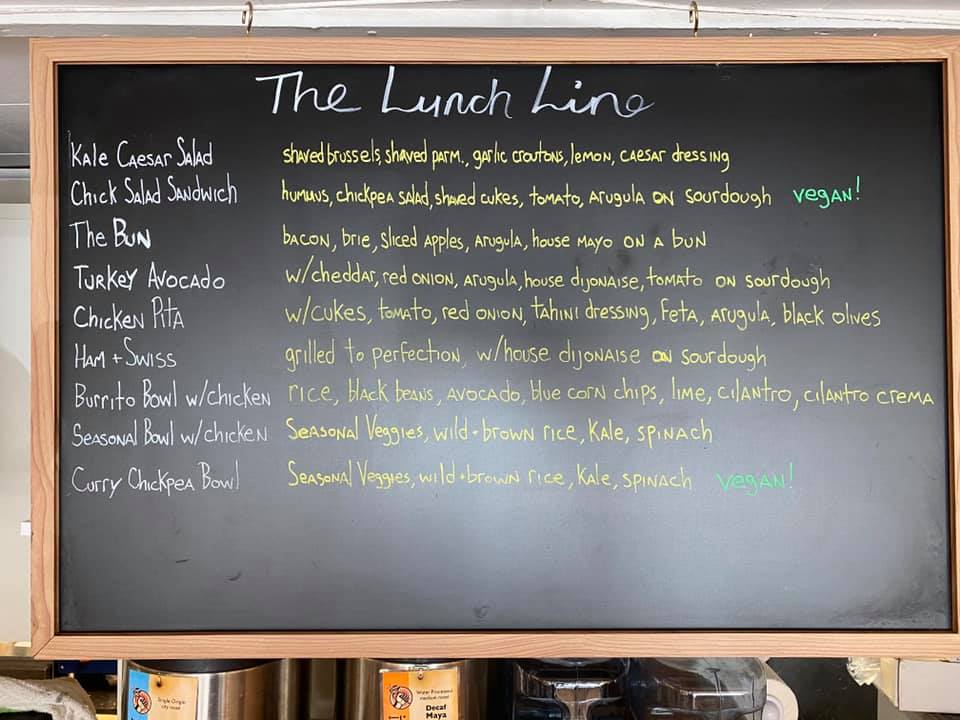 The Lunch Line
Kale Caesar Salad shaved brussels, shaved parm., garlic croutons, lemon, caesar dressing
Chick Salad Sandwich hummus, chickpea salad, shaved cukes, tomato, arugula on sourdough vegan!
The Bun bacon, brie, sliced apples, arugula, house mayo on a bun
Turkey Avocado w/cheddar, red onion, arugula, house dijonaise, tomato on sourdough
Chicken Pita w/cukes, tomato, red onion, tahini dressing, feta, arugula, black olives
Ham + Swiss grilled to perfection, w/house dijonaise on sourdough
Burrito Bowl w/chicken rice, black beans, avocado, blue corn chips, lime, cilantro, cilantro crema
Seasonal Bowl w/chicken Seasonal Veggies, wild + brown rice, kale, spinach
Curry Chickpea Bowl Seasonal Veggies, wild + brown rice, kale, spinach vegan!
Single Origin
city roast
Water Processed
medium roast
Decaf
Maya